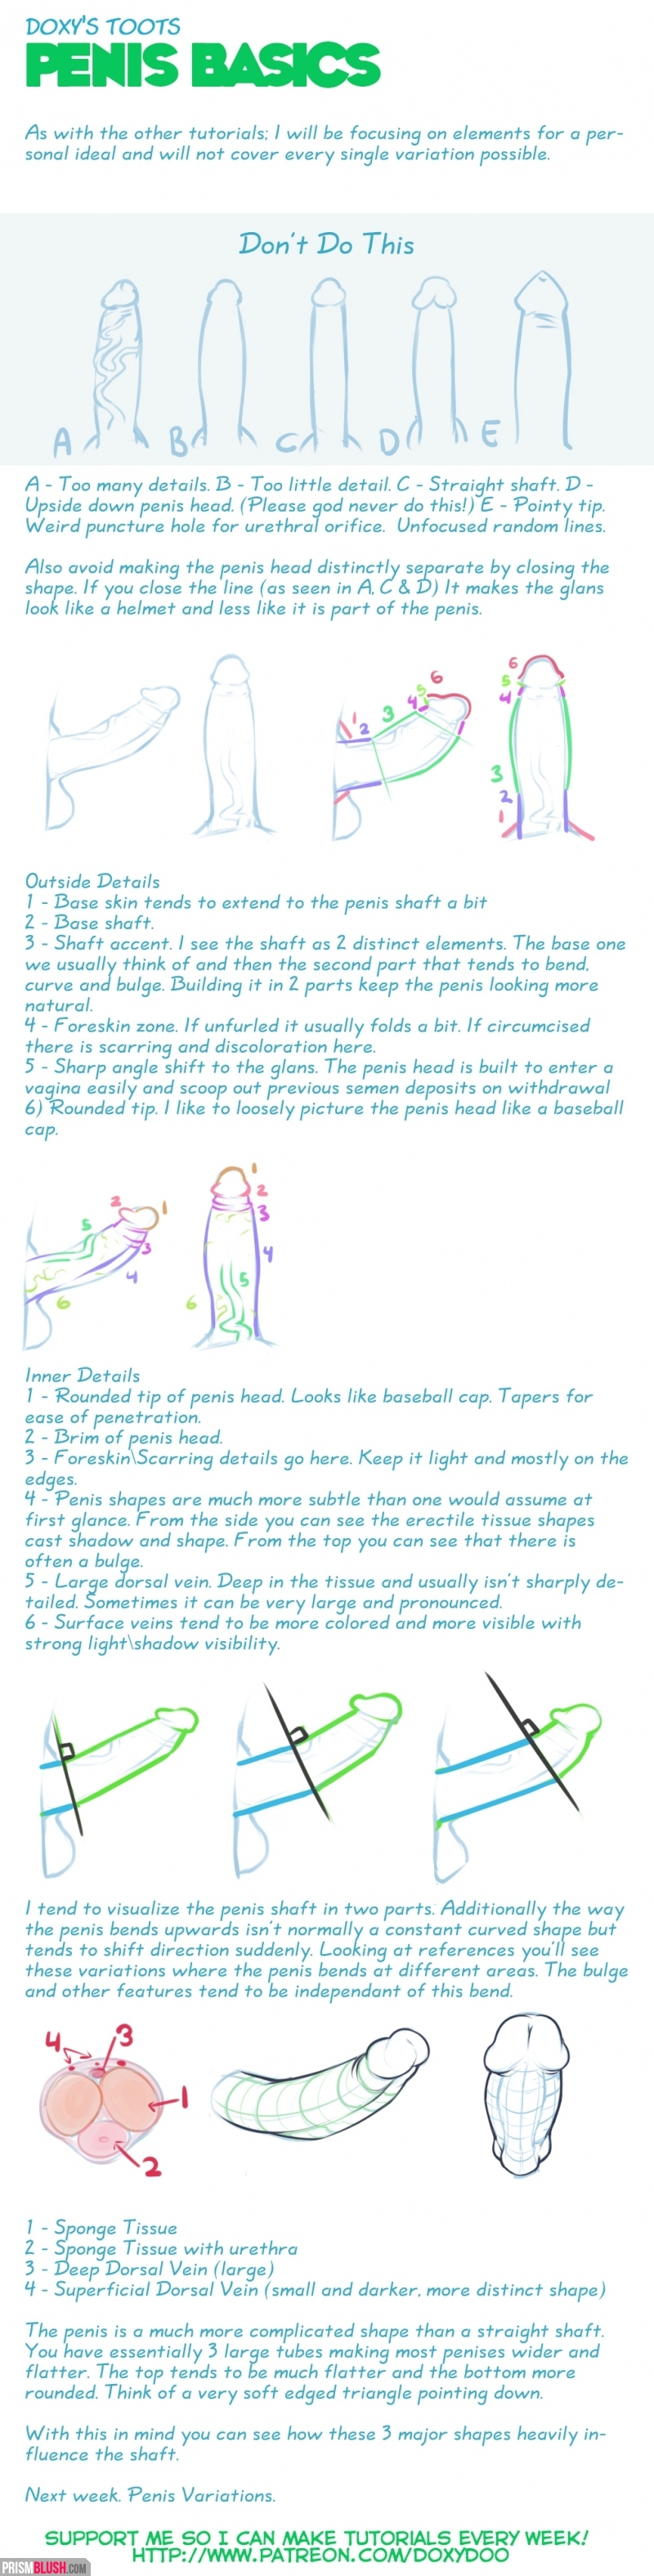 DOXY'S TOOTS
PENIS BASICS
As with the other tutorials; I will be focusing on elements for a per-
sonal ideal and will not cover every single variation possible.
Don't Do This
A B C D E
A - Too many details. B - Too little detail. C - Straight shaft. D -
Upside down penis head. (Please god never do this!) E - Pointy tip.
Weird puncture hole for urethral orifice. Unfocused random lines.
Also avoid making the penis head distinctly separate by closing the
shape. If you close the line (as seen in A, C & D) It makes the glans
look like a helmet and less like it is part of the penis.
1 2 3 4 5 6
6
5
4
3
2
1
Outside Details
1 - Base skin tends to extend to the penis shaft a bit
2 - Base shaft.
3 - Shaft accent. I see the shaft as 2 distinct elements. The base one
we usually think of and then the second part that tends to bend,
curve and bulge. Building it in 2 parts keep the penis looking more
natural.
4 - Foreskin zone. If unfurled it usually folds a bit. If circumcised
there is scarring and discoloration here.
5 - Sharp angle shift to the glans. The penis head is built to enter a
vagina easily and scoop out previous semen deposits on withdrawal
6) Rounded tip. I like to loosely picture the penis head like a baseball
cap.
2 1
5 3
4
6
1
2
3
4
5
6
Inner Details
1 - Rounded tip of penis head. Looks like baseball cap. Tapers for
ease of penetration.
2 - Brim of penis head.
3 - Foreskin\Scarring details go here. Keep it light and mostly on the
edges.
4 - Penis shapes are much more subtle than one would assume at
first glance. From the side you can see the erectile tissue shapes
cast shadow and shape. From the top you can see that there is
often a bulge.
5 - Large dorsal vein. Deep in the tissue and usually isn't sharply de-
tailed. Sometimes it can be very large and pronounced.
6 - Surface veins tend to be more colored and more visible with
strong light\shadow visibility.
I tend to visualize the penis shaft in two parts. Additionally the way
the penis bends upwards isn't normally a constant curved shape but
tends to shift direction suddenly. Looking at references you'll see
these variations where the penis bends at different areas. The bulge
and other features tend to be independant of this bend.
4 3
1
2
1 - Sponge Tissue
2 - Sponge Tissue with urethra
3 - Deep Dorsal Vein (large)
4 - Superficial Dorsal Vein (small and darker, more distinct shape)
The penis is a much more complicated shape than a straight shaft.
You have essentially 3 large tubes making most penises wider and
flatter. The top tends to be much flatter and the bottom more
rounded. Think of a very soft edged triangle pointing down.
With this in mind you can see how these 3 major shapes heavily in-
fluence the shaft.
Next week. Penis Variations.
SUPPORT ME SO I CAN MAKE TUTORIALS EVERY WEEK!
HTTP://WWW.PATREON.COM/DOXYDOO
PRISMBLUSH.COM